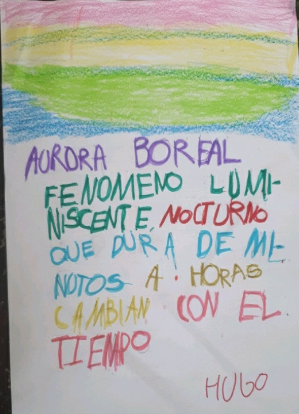 AURORA BOREAL
FENOMENO LUMI-
NISCENTE, NOCTURNO
QUE DURA DE MI-
NOTOS A HORAS
CAMBIAN CON EL
TIEMPO
HUGO